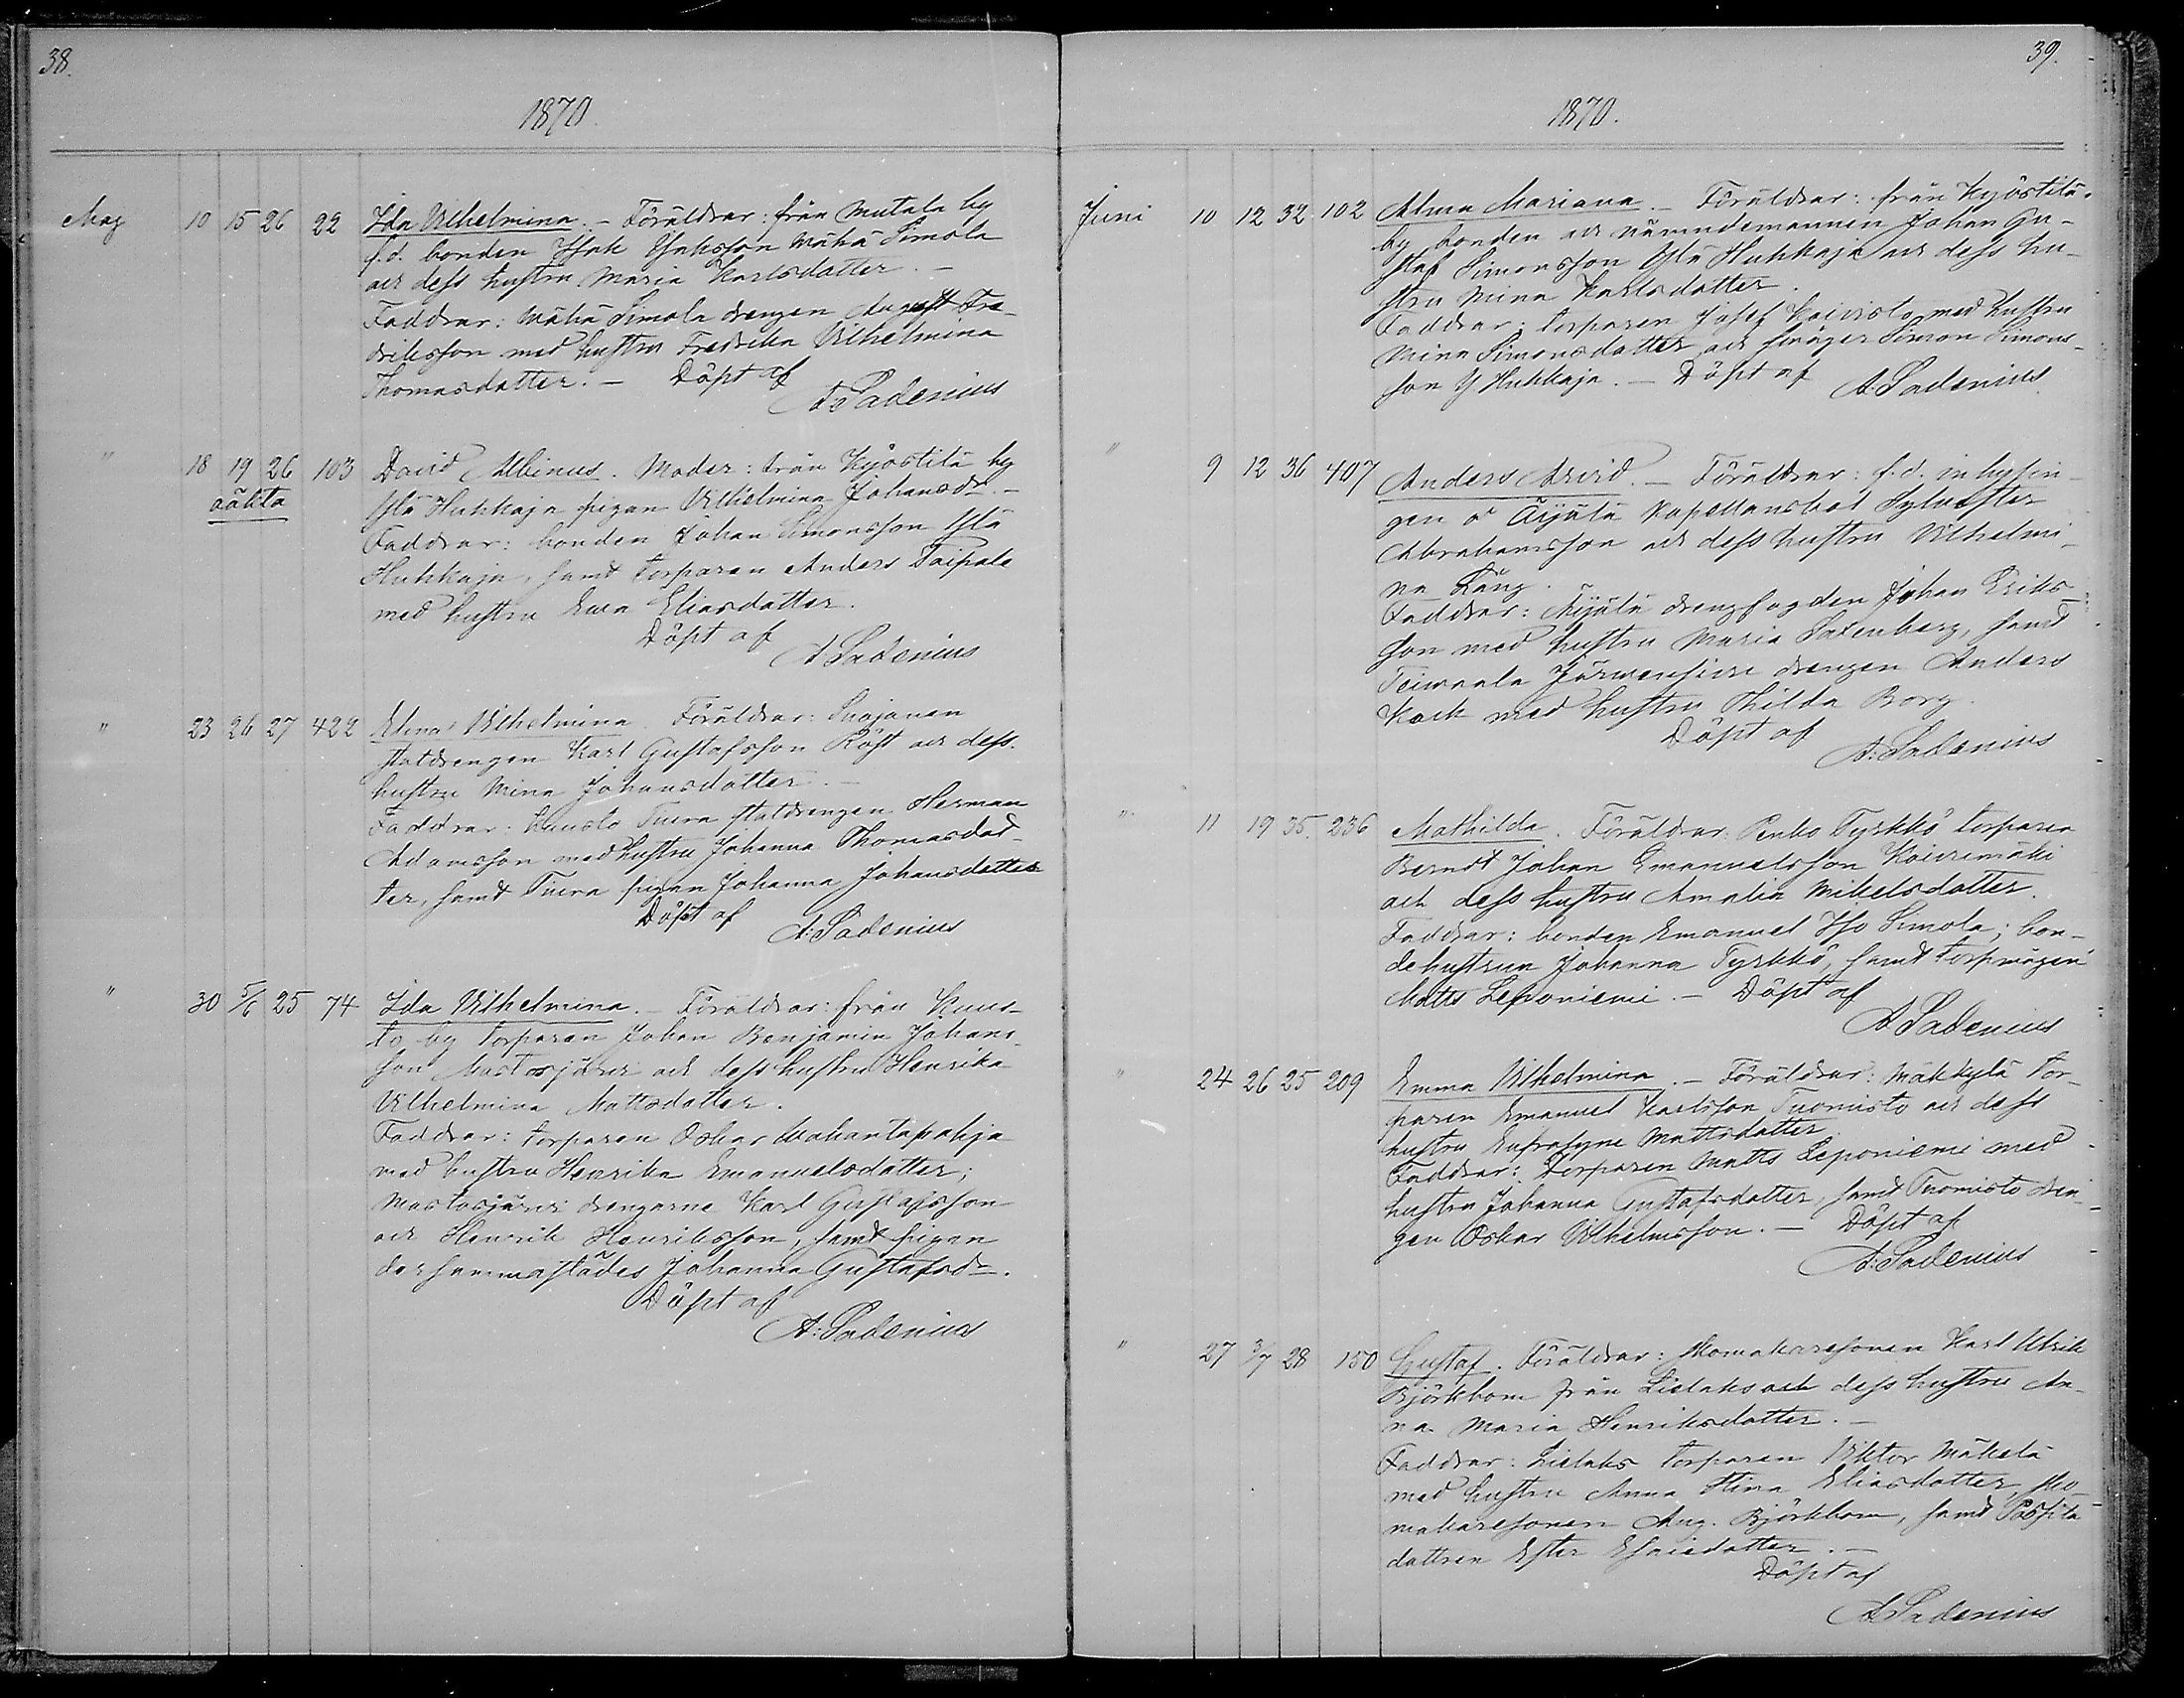 38.
1870.
Maj 10 15 26 22 Ida Vilhelmina. — Föräldrar: från Mutala by
f.d. bonden Isak Isaksson Mähä Simola
och dess hustru Maria Karlsdotter. —
Faddrar: Mähä Simola drengen August Fre-
driksson med hustru Fredrika Vilhelmina
Thomasdotter. — Döpt af
A: Ladenius
" 18 19 26 103 David Albinus. Moder: från Kyöstilä by
oäkta Ylä Huhkaja pigan Vilhelmina Johansdr. —
Faddrar: bonden Johan Simonsson Ylä
Huhkaja, samt torparen Anders Taipale
med hustru Eva Eliasdotter.
Döpt af
A Ladenius
" 23 26 27 422 Elina Vilhelmina. Föräldrar: Suojanen
statdrengen Karl Gustafsson Röst och dess
hustru Mina Johansdotter. —
Faddrar: Kunsto Tuera statdrengen Herman
Adamsson med hustru Johanna Thomasdot-
ter, samt Tuera pigan Johanna Johansdotter
Döpt af
A: Ladenius
" 30 5/6 25 74 Ida Vilhelmina. — Föräldrar: från Kuns-
to by torparen Johan Benjamin Johans-
son Mustasjärvi och dess hustru Henrika
Vilhelmina Mattsdotter.
Faddrar: torparen Oskar Mahantapahja
med hustru Henrika Emanuelsdotter;
Mustasjärvi drengarne Karl Gustafsson
och Henrik Henriksson, samt pigan
dersammastädes Johanna Gustafsdr.
Döpt af
A: Ladenius
39.
1870.
Juni 10 12 32 102 Alma Mariana. — Föräldrar: från Kyöstilä
by bonden och nämndemannen Johan Gu-
staf Simonsson Ylä Huhkaja och dess hu-
stru Mina Karlsdotter.
Faddrar: torparen Josef Koivisto med hustru
Mina Simonsdotter och svåger Simon Simons-
son Y Huhkaja. — Döpt af
A: Ladenius
" 9 12 36 407 Anders Arvid. — Föräldrar: f.d. inhysin-
gen å Äijälä Kapellansbol Sylvester
Abrahamsson och dess hustru Vilhelmi-
na Läng.
Faddrar: Äijälä drengfogden Johan Eriks-
son med hustru Maria Satenberg, samt
Teivaala Järvensivu drengen Anders
Kock med hustru Thilda Borg.
Döpt af
A: Ladenius
" 11 19 35 236 Mathilda. Föräldrar: Penko Tyrkkö torparen
Berndt Johan Emanuelsson Koivumäki
och dess hustru Amalia Mikelsdotter.
Faddrar: bonden Emanuel Iso Simola; bon-
dehustrun Johanna Tyrkkö, samt torpmågen
Matts Leponiemi. — Döpt af
A Ladenius
" 24 26 25 209 Emma Vilhelmina. — Föräldrar: Mäkkylä tor-
paren Emanuel Karlsson Tuomisto och dess
hustru Eufrosyne Mattsdotter.
Faddrar: torparen Matts Leponiemi med
hustru Johanna Gustafsdotter, samt Tuomisto dren-
gen Oskar Vilhelmsson. — Döpt af
A: Ladenius
" 27 3/7 28 150 Gustaf. Föräldrar: Skomakaresonen Karl Ulrik
Björkbom från Lielaks och dess hustru An-
na Maria Henriksdotter. —
Faddrar: Lielaks torparen Viktor Mäkelä
med hustru Anna Stina Eliasdotter, sko-
makaresonen Aug. Björkbom, samt Pospila
dottren Ester Esaiedotter. —
Döpt af
A Ladenius